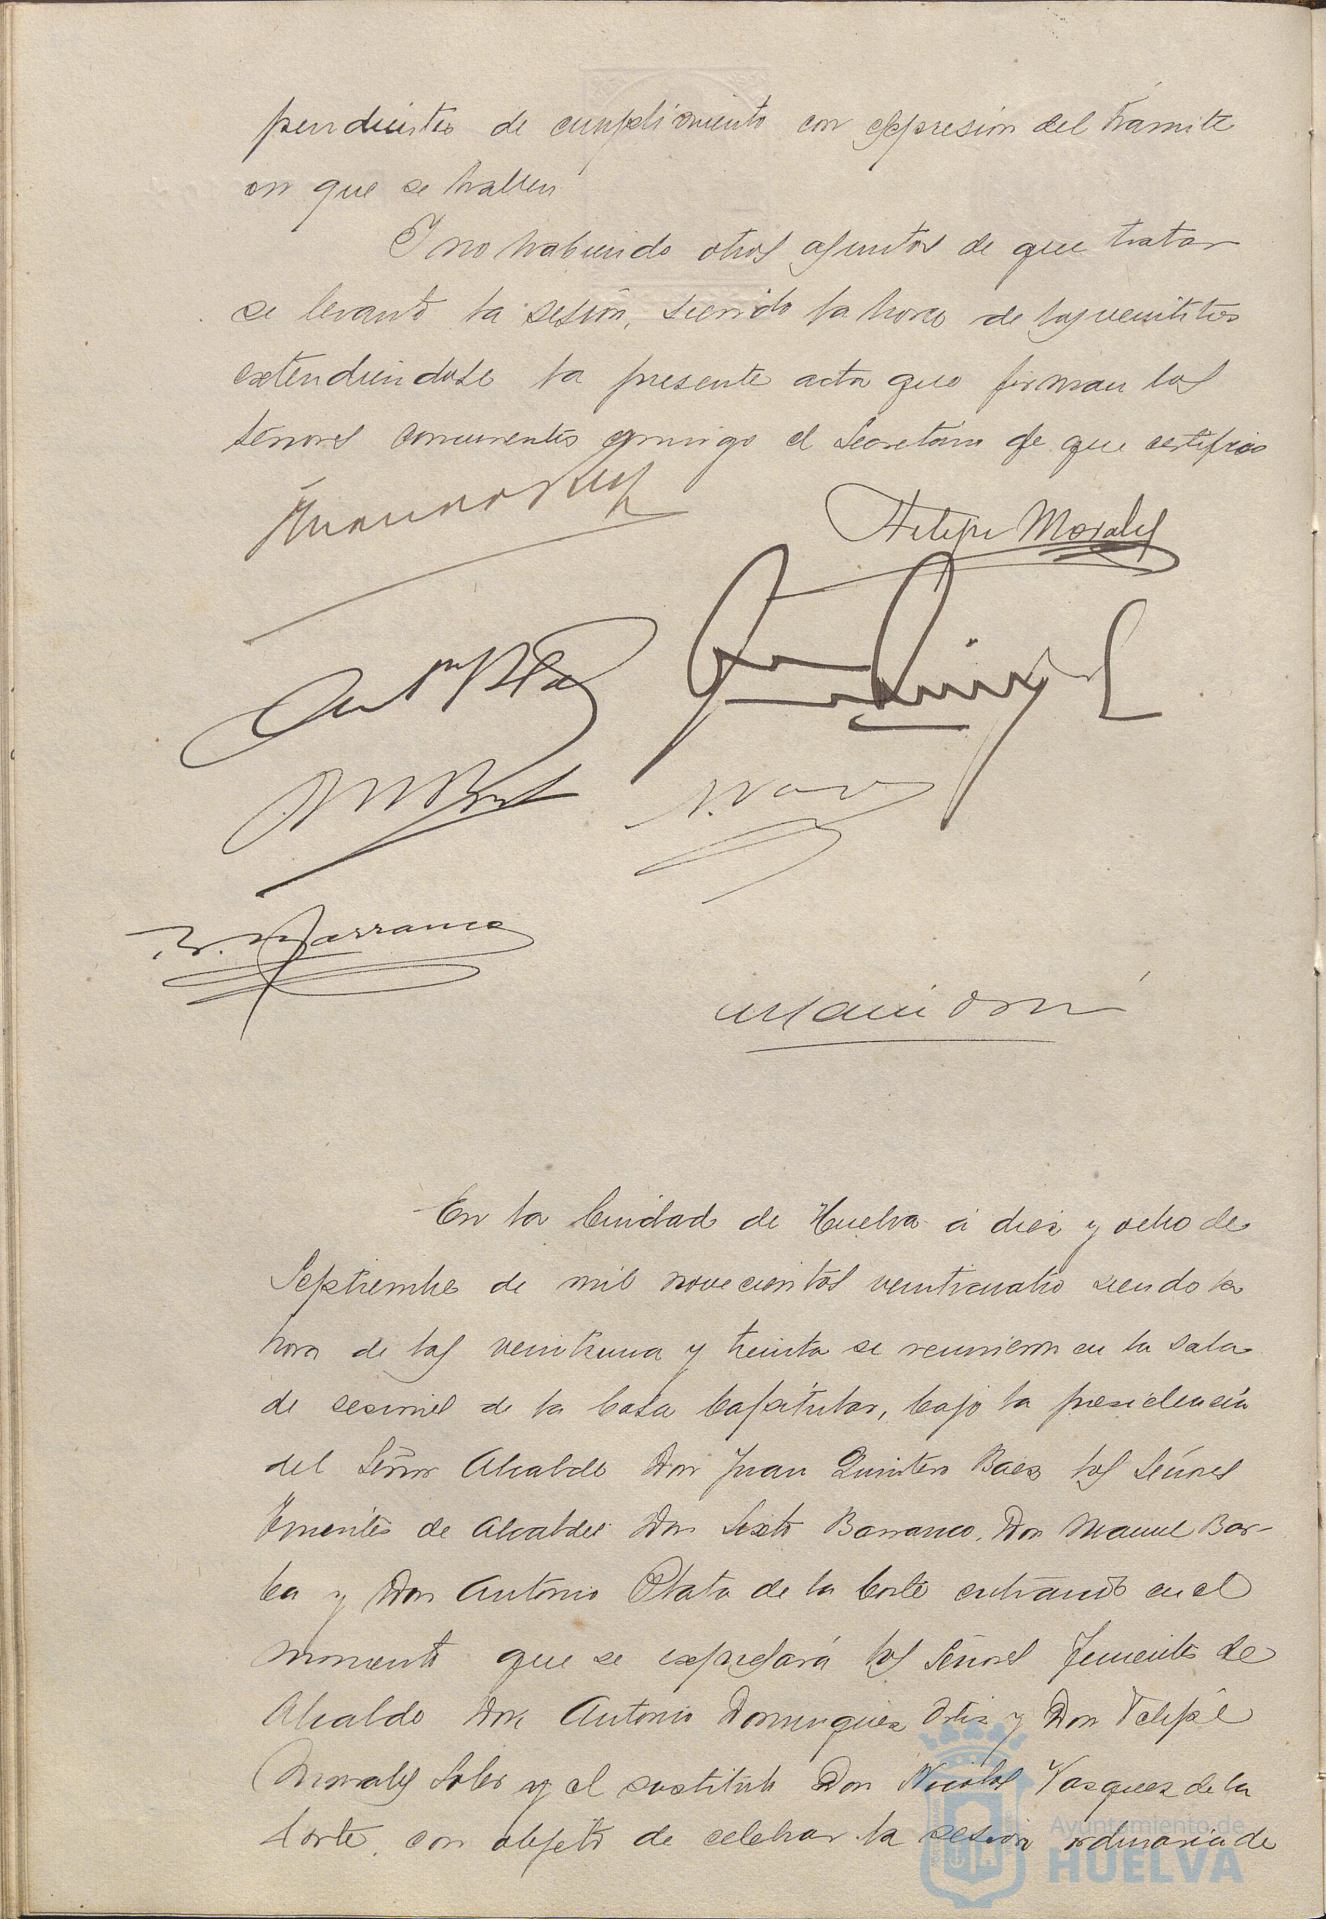 pendientes de cumplimiento con expresión del trámite
en que se hallen
Y no habiendo otros asuntos de que tratar
se levantó la sesión, siendo la hora de las veintitres
extendiendose la presente acta que firman los
Señores concurrentes conmigo el Secretario de que certifico
Felipe Morales
Ant Pla
N. Vaz
S. Barranco
En la Ciudad de Huelva á diez y ocho de
Septiembre de mil novecientos veinticuatro siendo la
hora de las veintiuna y treinta se reunieron en la sala
de sesiones de la Casa Capitular, bajo la presidencia
del Señor Alcalde Don Juan Quintero Baez los Señores
Tenientes de Alcaldes Don Sixto Barranco, Don Manuel Bar-
ba y Don Antonio Plata de la Corte entrando en el
momento que se expresará los Señores Tenientes de
Alcalde Don Antonio Dominguez Ortiz y Don Felipe
Morales Soler y el sustituto Don Nicolas Vazquez de la
Corte, con objeto de celebrar la sesión ordinaria de
Ayuntamiento de
HUELVA